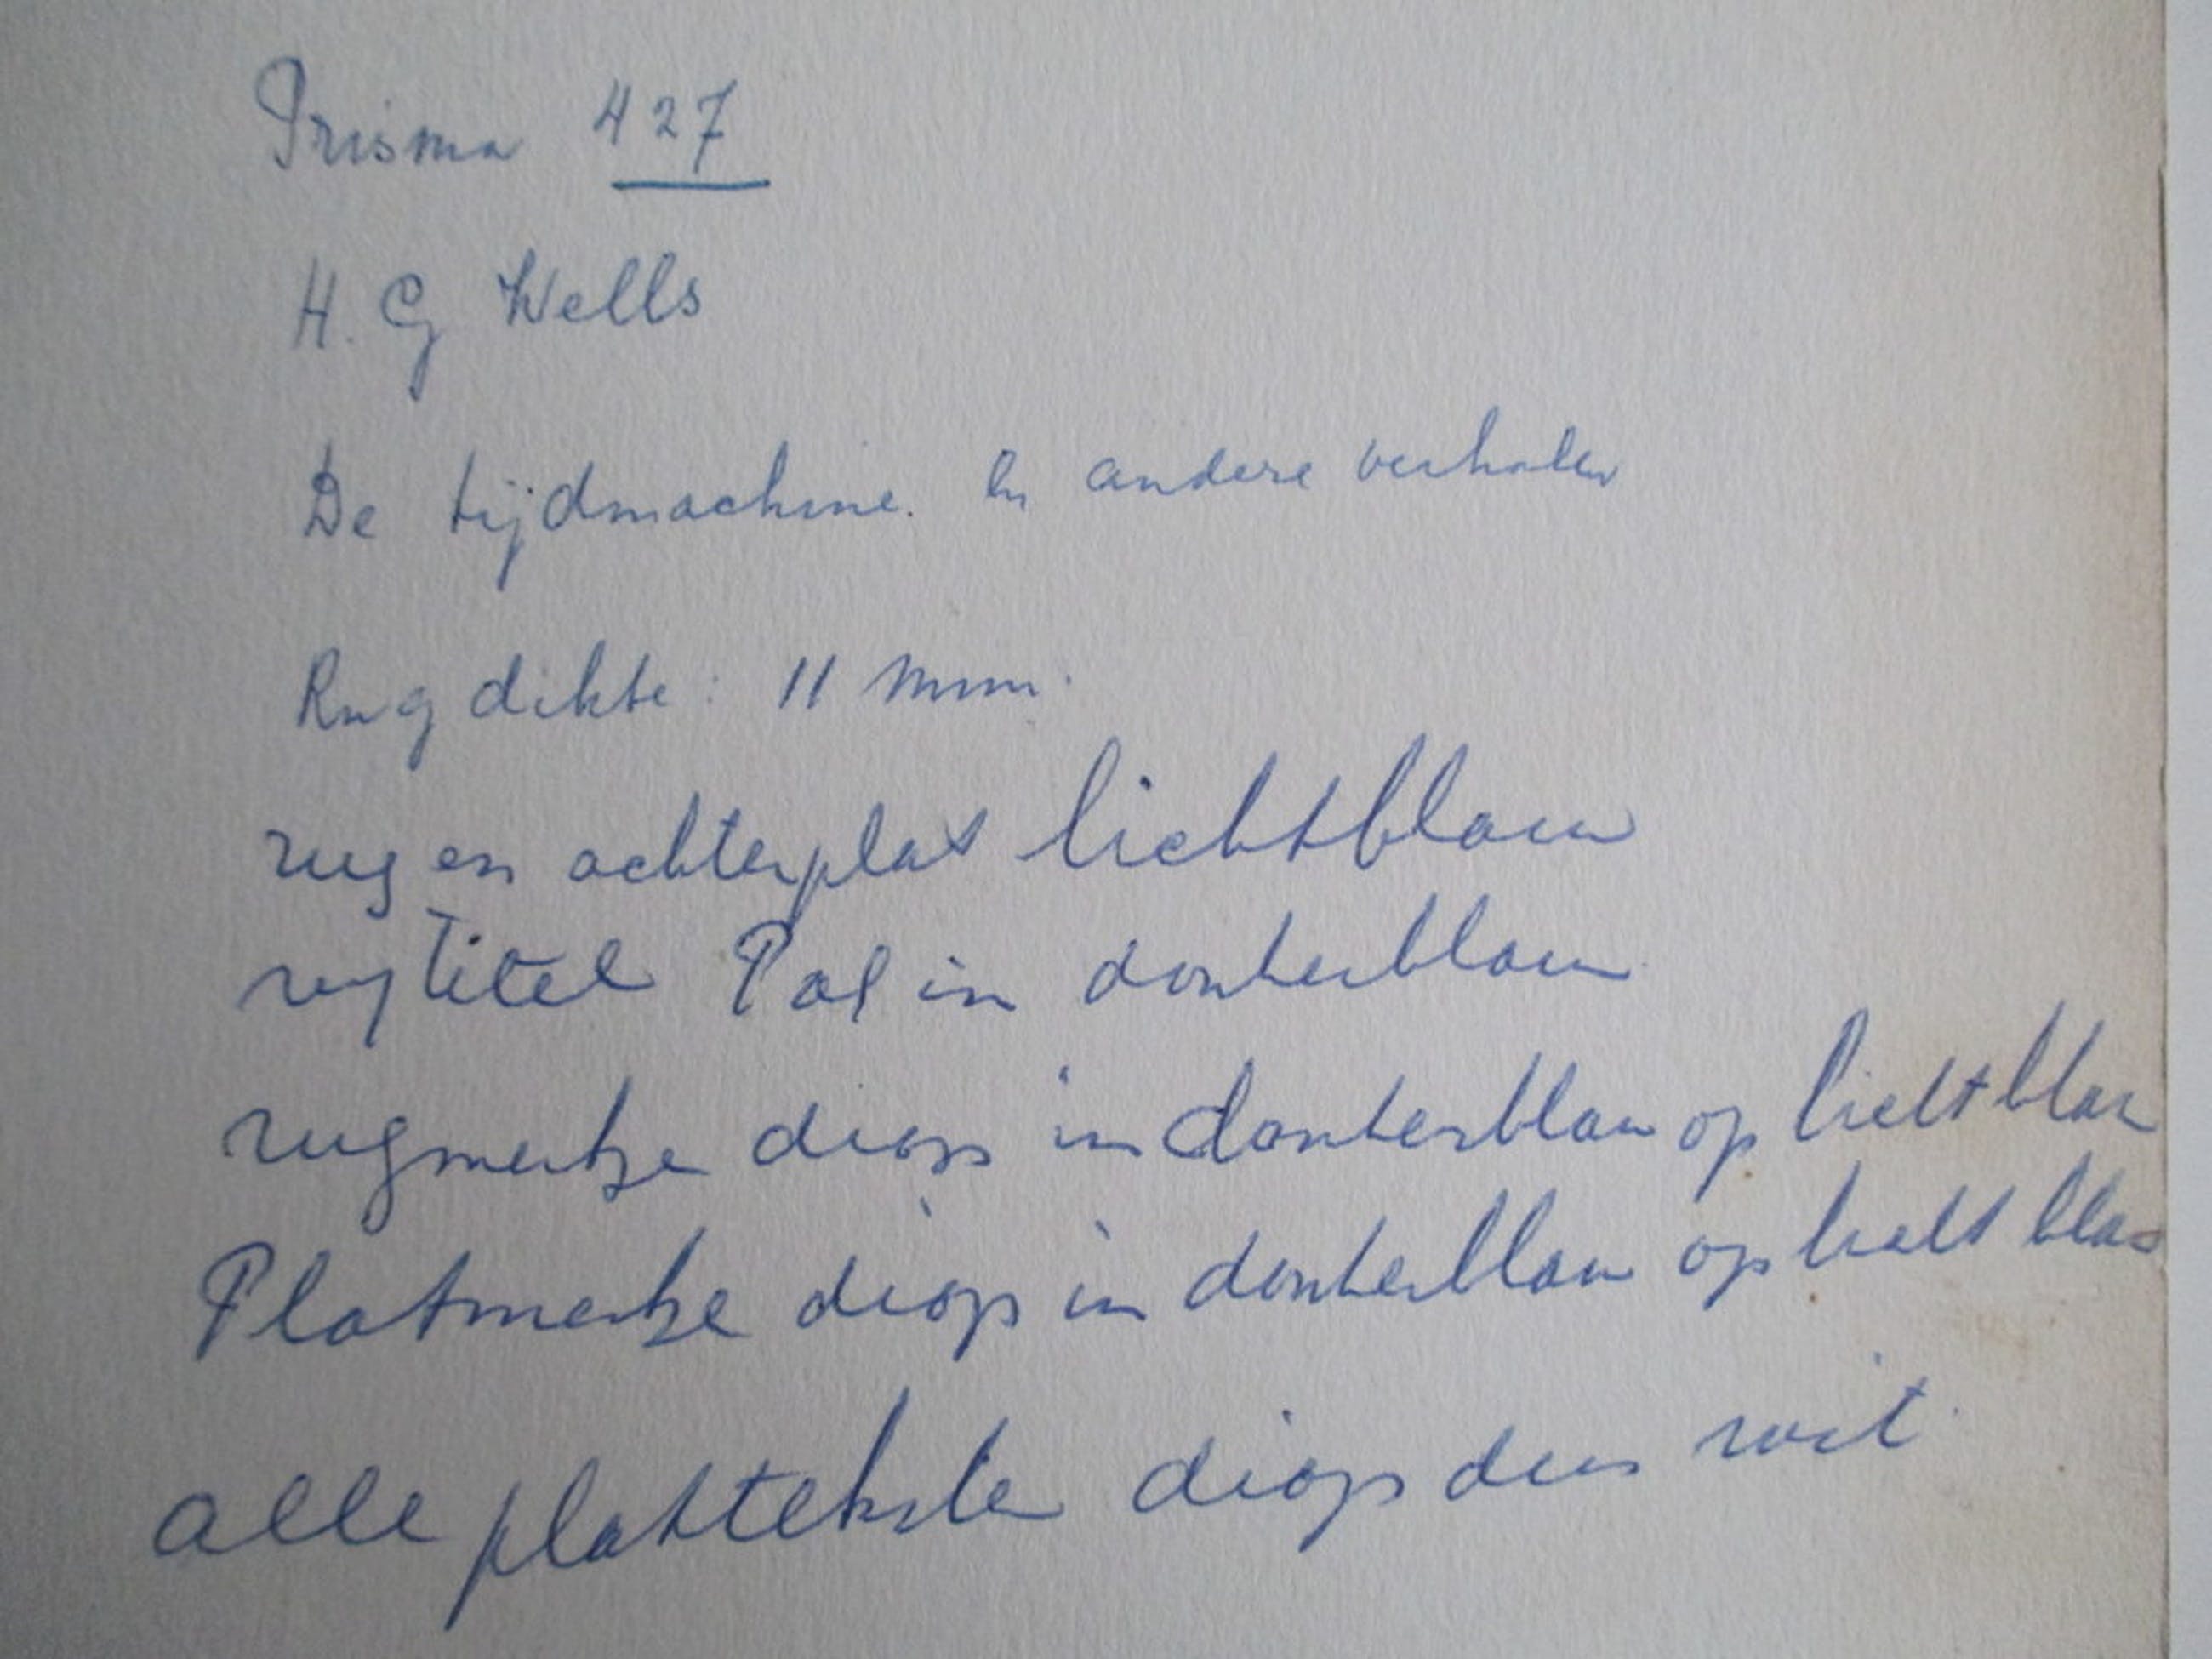 Prisma 427
H. G Wells
De tijdmachine. En andere verhalen
Rug dikte: 11 mm.
rug en achterplat lichtblauw
rugtitel in donkerblauw
rugmerkje diap in donkerblauw op lichtblau
Platmerkje diap in donkerblauw op licht blau
alle platteksten diap dus wit